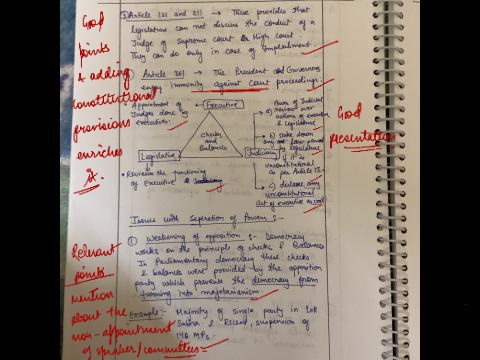 ③ Article 121 and 211 → These provides that
legislature can not discuss the conduct of a
Judge of Supreme court or High court
They can do only in case of impeachment.
Good
points
& adding
constitutional
provisions
enriches
it.
Article 361 → The President & Governors
enjoy immunity against court proceedings
• Appointment of
Judges done by
executives.
Executive
Checks
and
Balances
Legislative
Judiciary
• Reviews the functioning
of Executive &
Power of Judicial
a) review over
actions of executive
& legislature
b) strike down
any law passed
by legislature
if it is
unconstitutional
as per Article 13.
c) declare any
unconstitutional
Act of executive as void
Good
presentation
Issues with Sepration of Powers :-
① Weakening of opposition :- Democracy
works on the principle of checks & Balances
In Parliamentary democracy these checks
& balances were provided by the opposition
party which prevents the democracy from
turning into majoritarianism.
Example:- Majority of single party in Lok
Sabha & Recent suspension of
146 MPs.
Relevant
points.
mention
about the
non-appointment
of speaker/committees